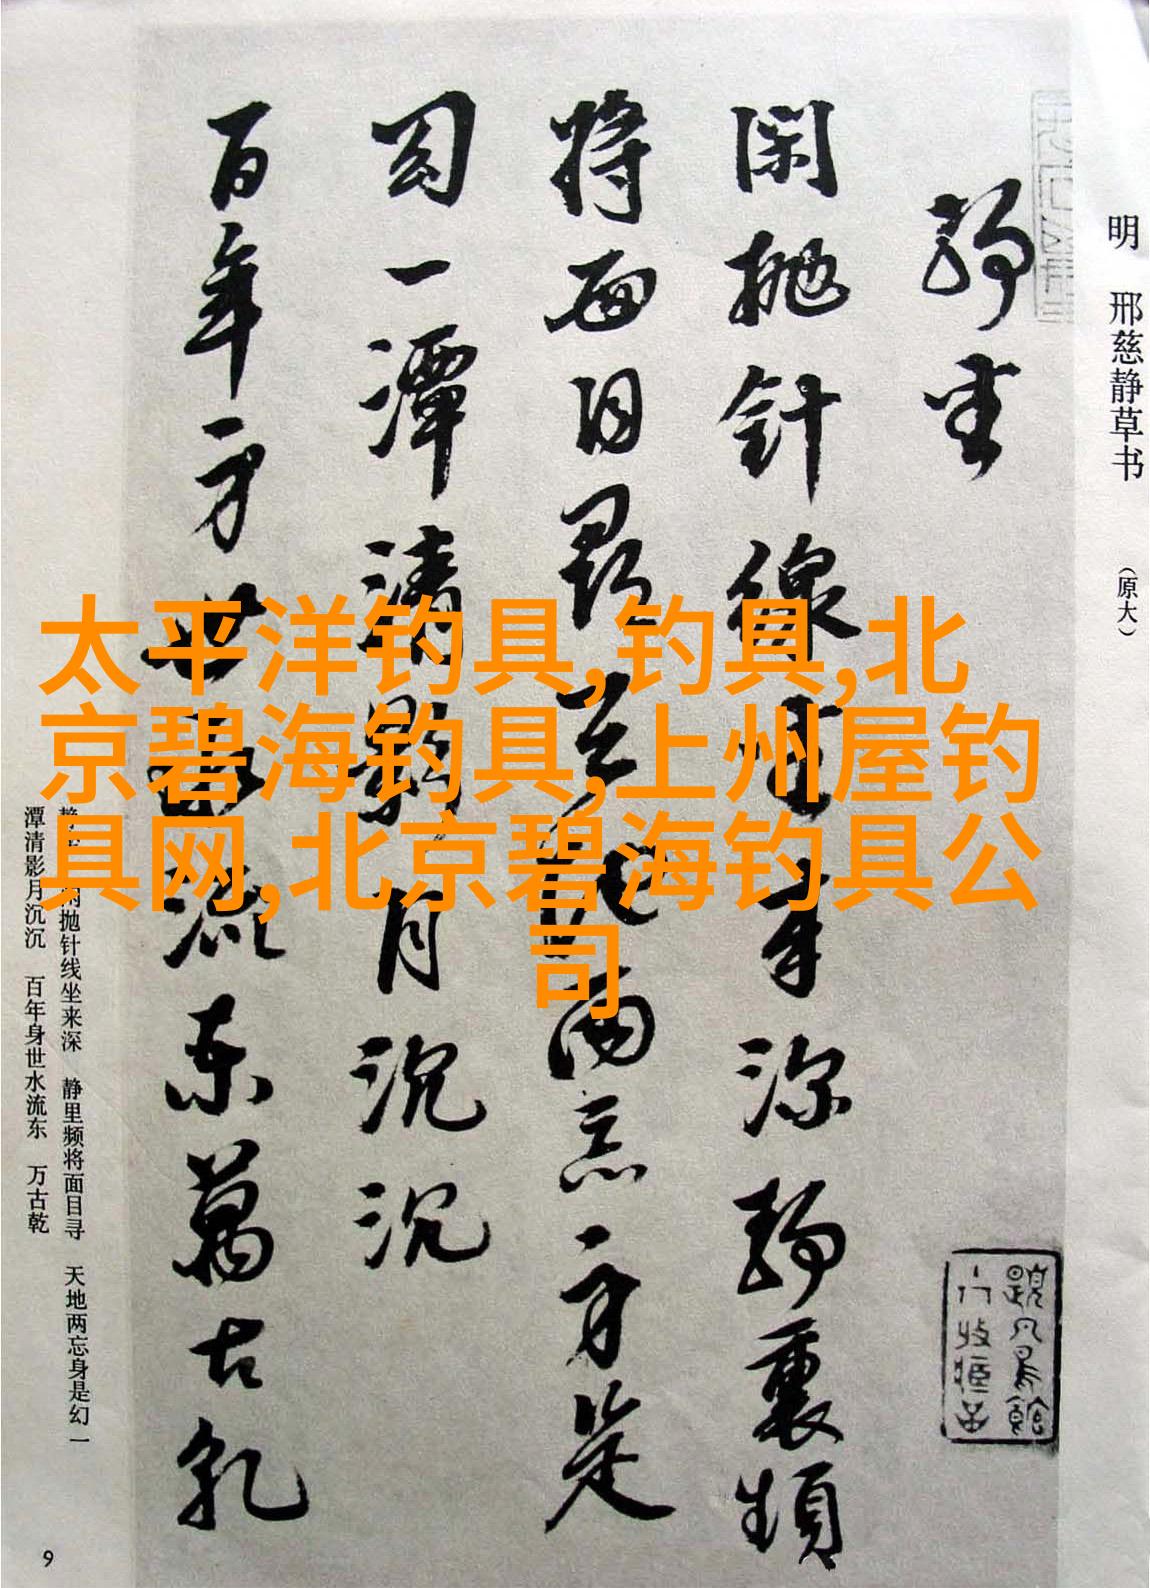 明 邢慈静草书 （原大）
静坐
闲抛针線坐来深静裏頻
将面目尋天地两忘身是
幻一潭清影月沉沉
百年身世水流东萬古乾
静坐 闲抛针线坐来深 静里频将面目寻 天地两忘身是幻 一
潭清影月沉沉 百年身世水流东 万古乾
9
太平洋钓具,钓具,北
京碧海钓具,上州屋钓
具网,北京碧海钓具公
司